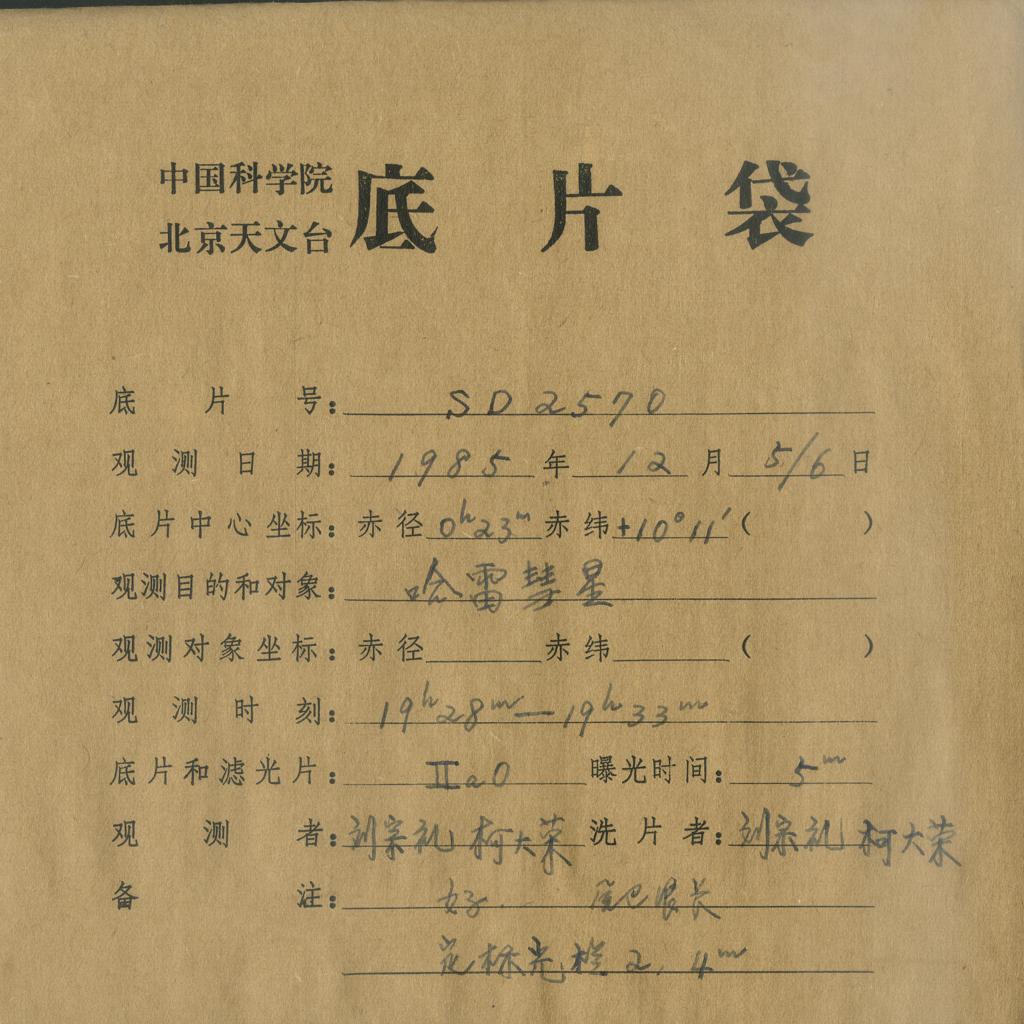 中国科学院
北京天文台 底片袋
底片号: SD2570
观测日期: 1985年12月5/6日
底片中心坐标: 赤径 0ʰ23ᵐ 赤纬 +10°11′ ( )
观测目的和对象: 哈雷彗星
观测对象坐标: 赤径 赤纬 ( )
观测时刻: 19ʰ28ᵐ—19ʰ33ᵐ
底片和滤光片: IIaO 曝光时间: 5ᵐ
观测者: 刘宗礼 柯大荣 洗片者: 刘宗礼 柯大荣
备注: 好. 尾巴很长
定标光栏 2. 4ᵐ